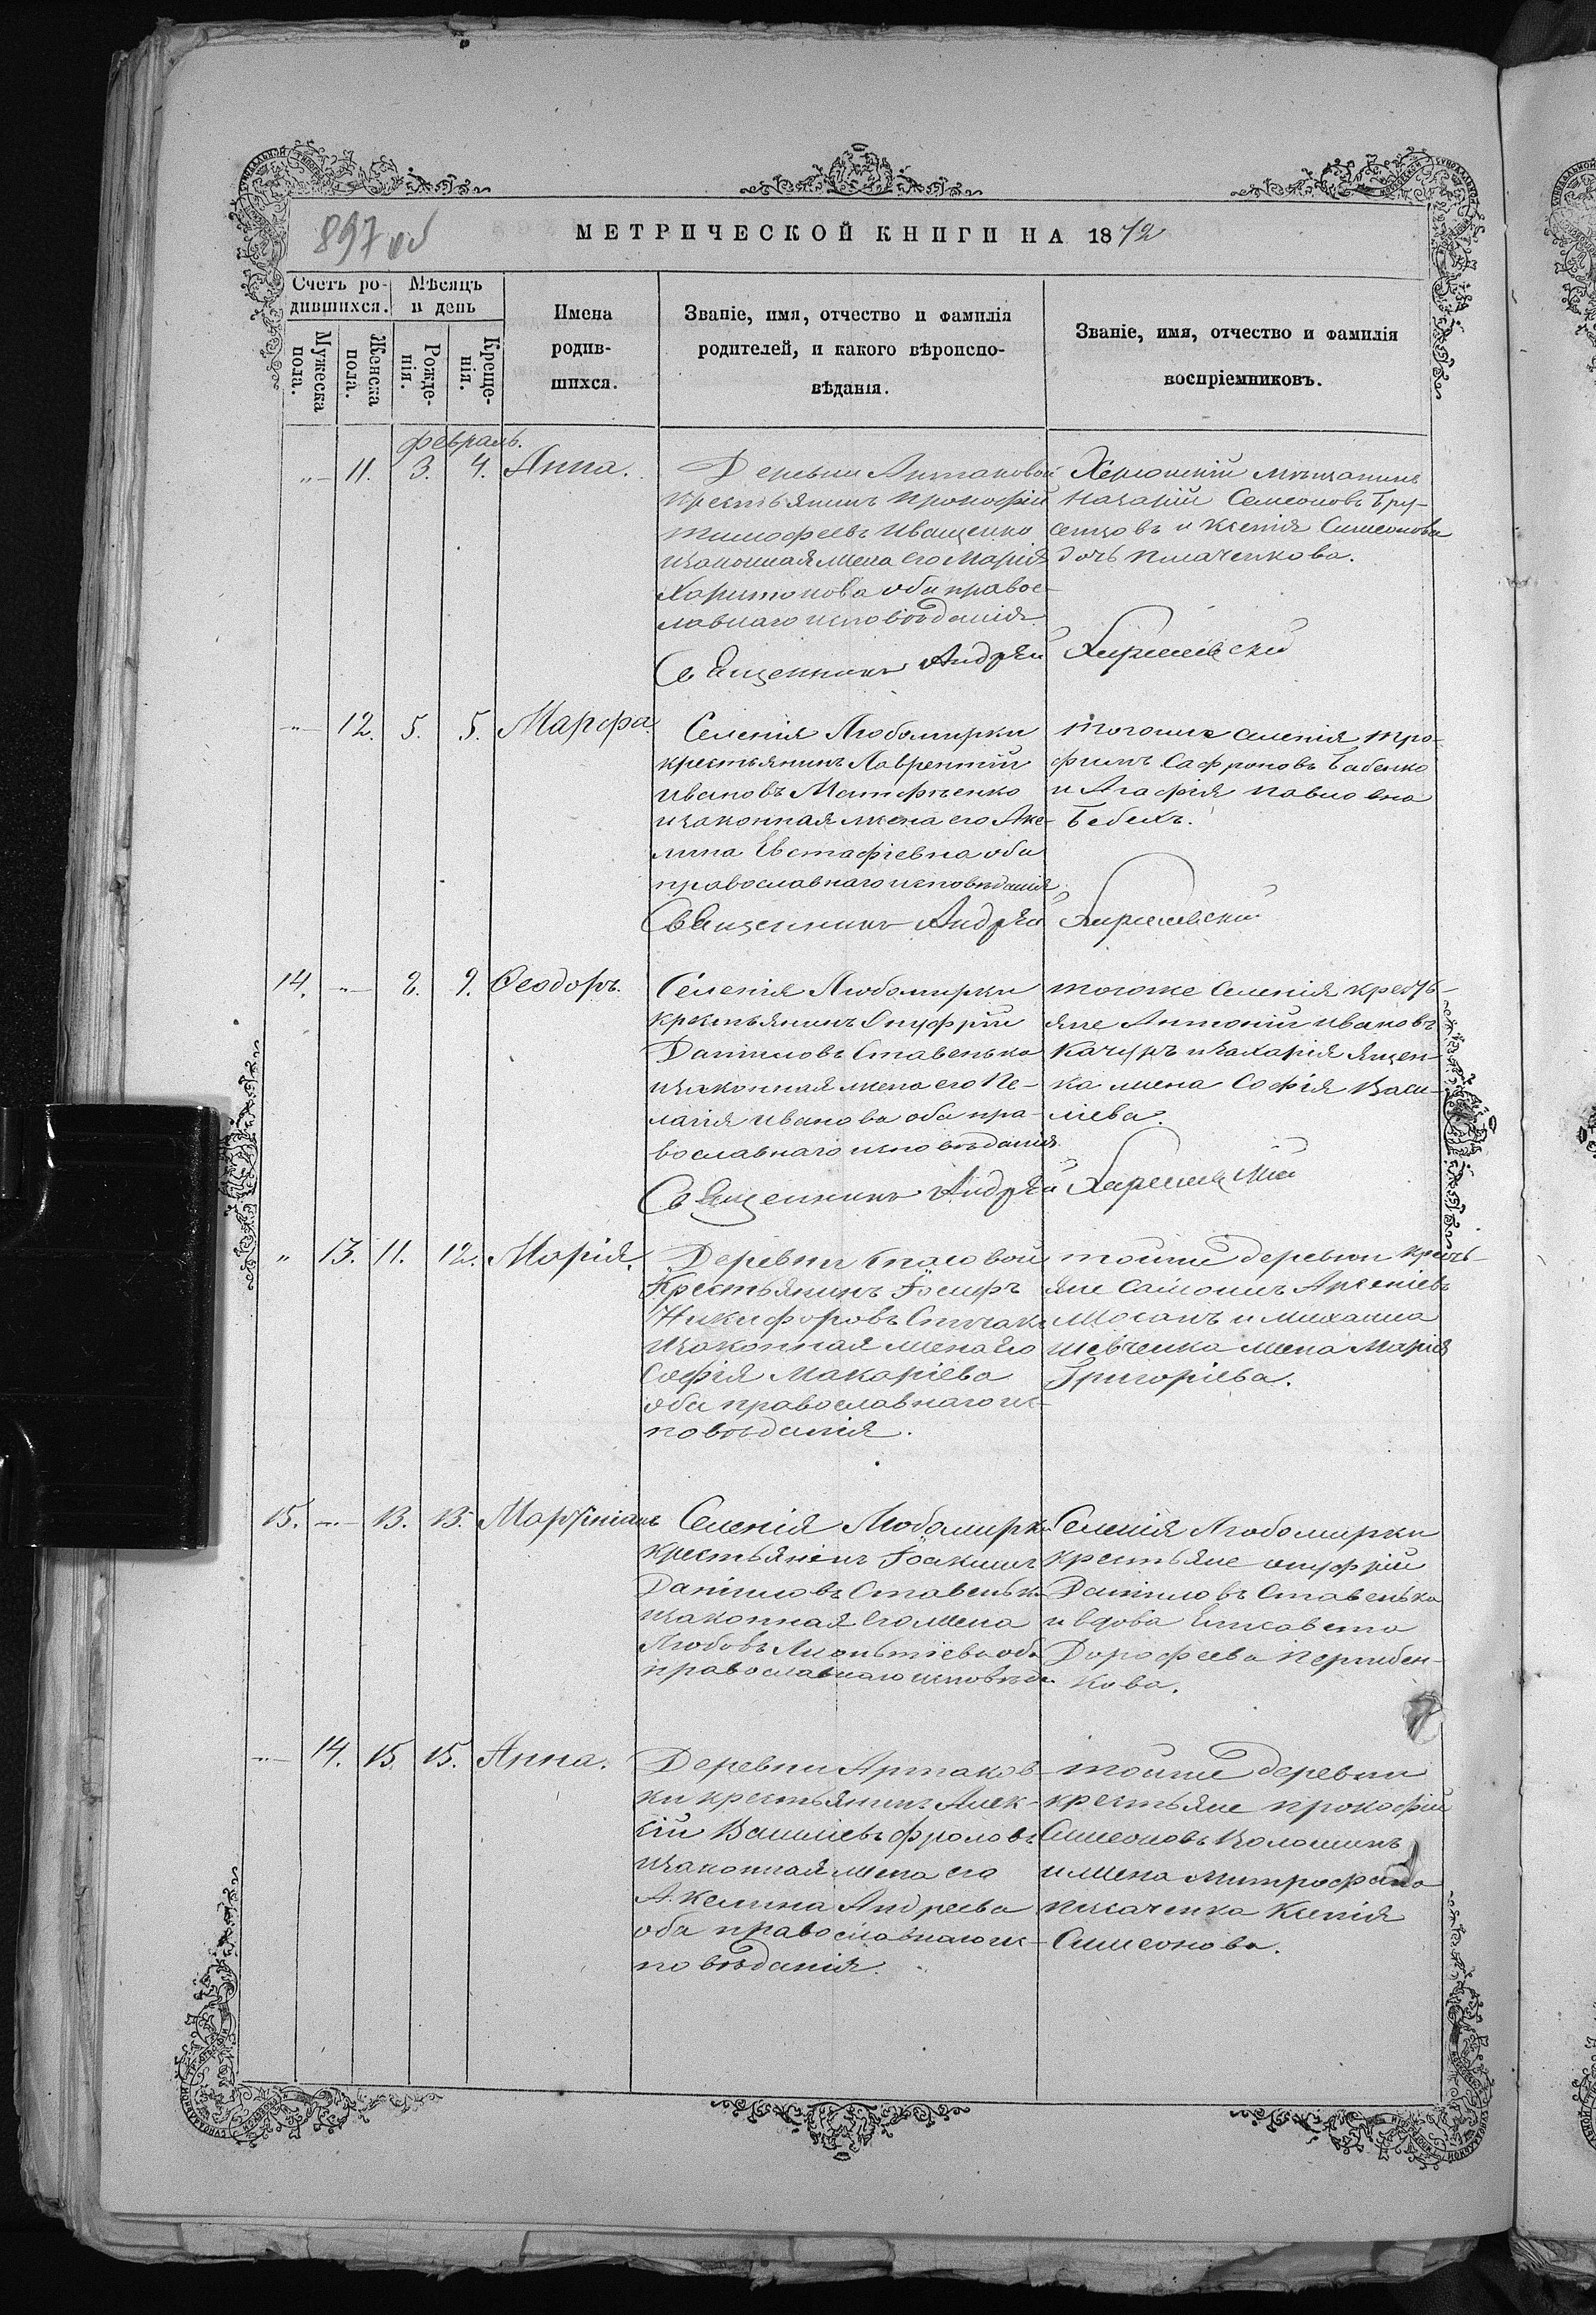 897 об
МЕТРИЧЕСКОЙ КНИГИ НА 1872
Счетъ ро-
дившихся.
Мѣсяцъ
и день
Мужеска
пола.
Женска
пола.
Рожде-
нія.
Креще-
нія.
Имена
родив-
шихся.
Званіе, имя, отчество и фамилія
родителей, и какого вѣроиспо-
вѣданія.
Званіе, имя, отчество и фамилія
воспріемниковъ.
февраль.
11. 3. 4. Анна.
Деревни Антаковой
крестьянинъ Прокофій
Тимофеевъ Иващенко
изаконная жена его Марія
Харитонова оби правос-
лавнаго исповѣданія
Херсонскій мѣщанинъ
Назарій Семеоновъ Бру-
сенцовъ и Ксенія Симеонова
дочь Писаченкова.
Священникъ Андрей
12. 5. 5. Марфа.
Селенія Любомирки
крестьянинъ Лаврентій
Ивановъ
изаконная жена его Аке-
лина Евстафіевна оби
православнаго исповѣданія
Тогоже селенія Тро-
фимъ Сафроновъ Бабенко
и Агафія Павловна
Бебехъ.
Священникъ Андрей
14. 8. 9. Феодоръ.
Селенія Любомирки
крестьянинъ Онуфрій
Даниловъ Ставенько
изаконная жена его Пе-
лагія Иванова оби пра-
вославнаго исповѣданія
тогоже селенія кресть-
яне Антоній Ивановъ
Качуръ и Захарія Ящен-
ка жена Софія Васи-
ліева.
Священникъ Андрей
13. 11. 12. Марія.
Деревни Спасовой
Крестьянинъ Іосифъ
Никифоровъ
изаконная жена его
Софія Макаріева
оби православнаго ис-
повѣданія.
тойже деревни кресть-
яне Самоилъ Арсеніевъ
и Михаила
Шевченка жена Марія
Григоріева.
15. 13. 13. Мартініанъ
Селенія Любомирки
крестьянинъ Іоакимъ
Даниловъ Ставенько
изаконная его жена
Любовь оби
православнаго исповѣда
Селенія Любомирки
крестьяне Онуфрій
Даниловъ Ставенько
и вдова Елисавета
Дорофеева
кова.
14. 15. 15. Анна.
Деревни Артаков-
ки крестьянинъ Алек-
сій Василіевъ Фроловъ
изаконная жена его
Акелина Андреева
оби православнаго ис-
повѣданія.
тойже деревни
крестьяне Прокофій
Симеоновъ Колошинъ
и жена Митрофана
Писаченка Ксенія
Симеонова.